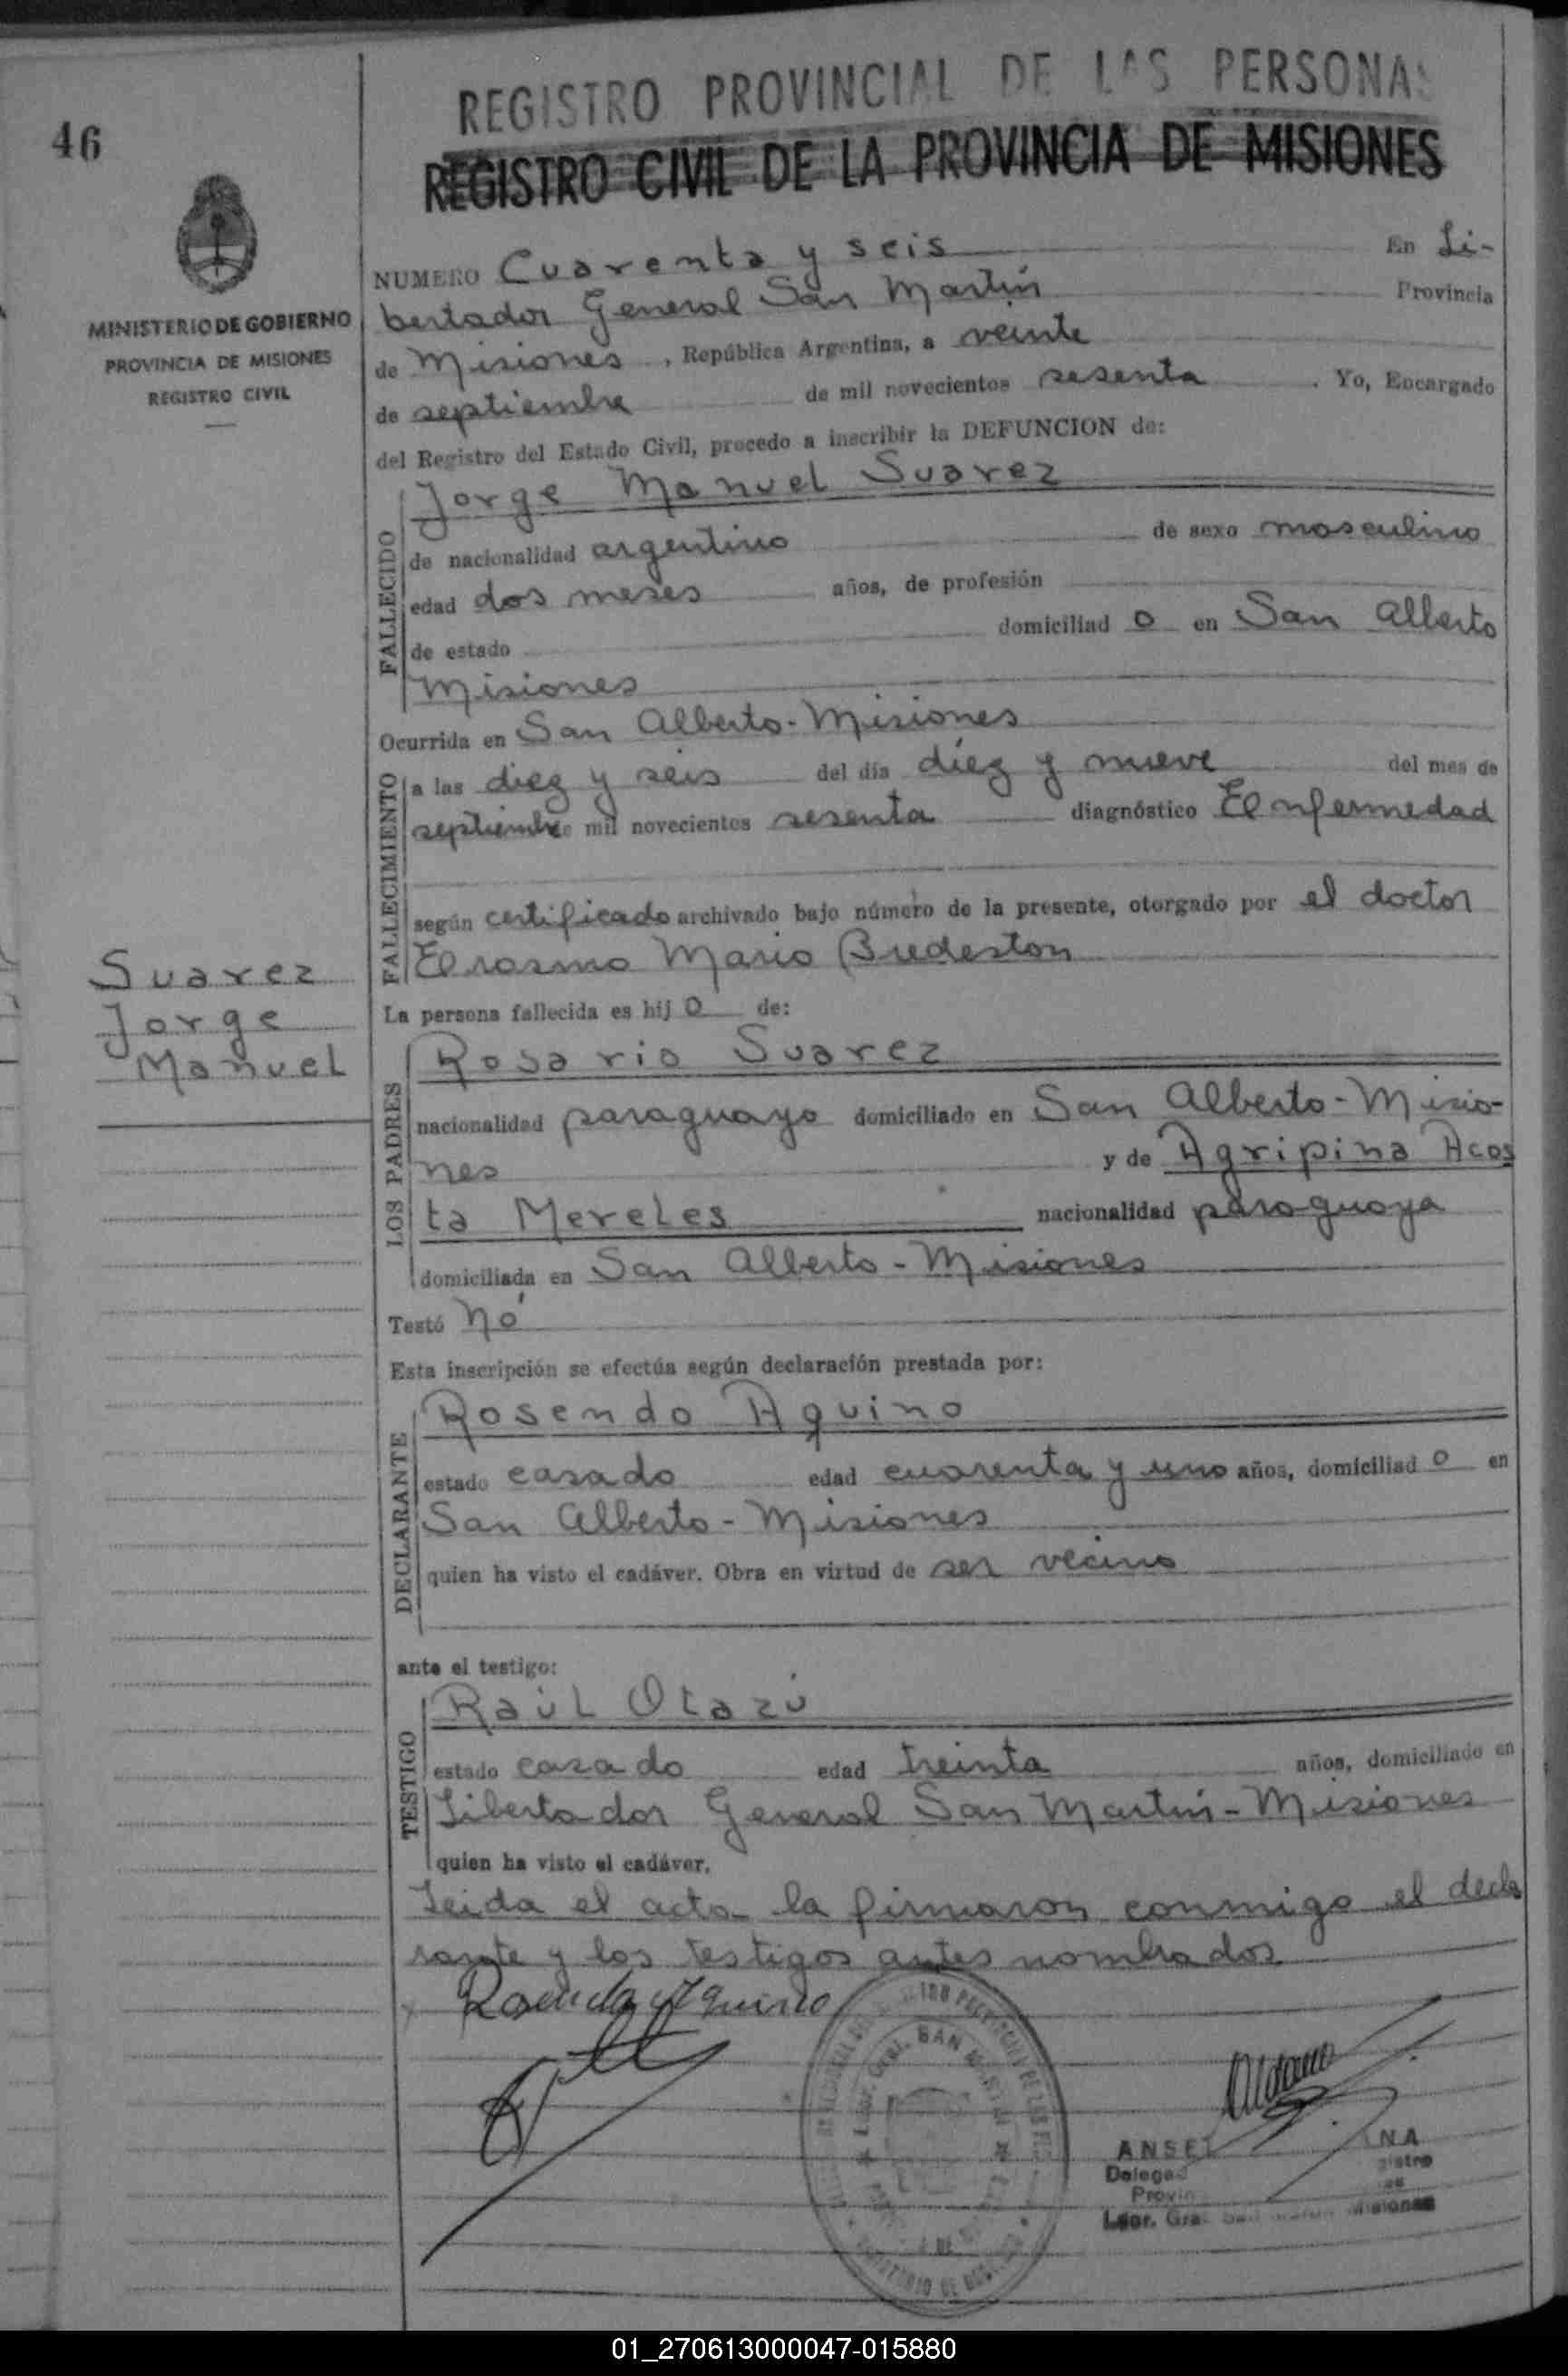 46
REGISTRO PROVINCIAL DE LAS PERSONAS
REGISTRO CIVIL DE LA PROVINCIA DE MISIONES
MINISTERIO DE GOBIERNO
PROVINCIA DE MISIONES
REGISTRO CIVIL
NUMERO Cuarenta y seis En Li-
bertador General San Martín Provincia
de Misiones , República Argentina, a veinte
de septiembre de mil novecientos sesenta . Yo, Encargado
del Registro del Estado Civil, procedo a inscribir la DEFUNCION de:
FALLECIDO
Jorge Manuel Suarez
de nacionalidad argentino de sexo masculino
edad dos meses años, de profesión
de estado domiciliad o en San Alberto
Misiones
Ocurrida en San Alberto-Misiones
FALLECIMIENTO
a las diez y seis del día diez y nueve del mes de
septiembre mil novecientos sesenta diagnóstico Enfermedad
según certificado archivado bajo número de la presente, otorgado por el doctor
Erasmo Mario Bredeston
Suarez
Jorge
Manuel
La persona fallecida es hij o de:
LOS PADRES
Rosario Suarez
nacionalidad paraguayo domiciliado en San Alberto-Misio-
nes y de Agripina Acos
ta Mereles nacionalidad paraguaya
domiciliada en San Alberto-Misiones
Testó Nó
Esta inscripción se efectúa según declaración prestada por:
DECLARANTE
Rosendo Aquino
estado casado edad cuarenta y uno años, domiciliad o en
San Alberto-Misiones
quien ha visto el cadáver. Obra en virtud de ser vecino
ante el testigo:
TESTIGO
Raúl Otazú
estado casado edad treinta años, domiciliado en
Libertador General San Martín-Misiones
quien ha visto el cadáver.
Leida el acta la firmaron conmigo el decla
rante y los testigos antes nombrados
Rosendo Aquino
Gral. SAN MARTIN
ANSE NA
Delegad istro
Provin
Ldor. Gral San Martin Misiones
01_270613000047-015880